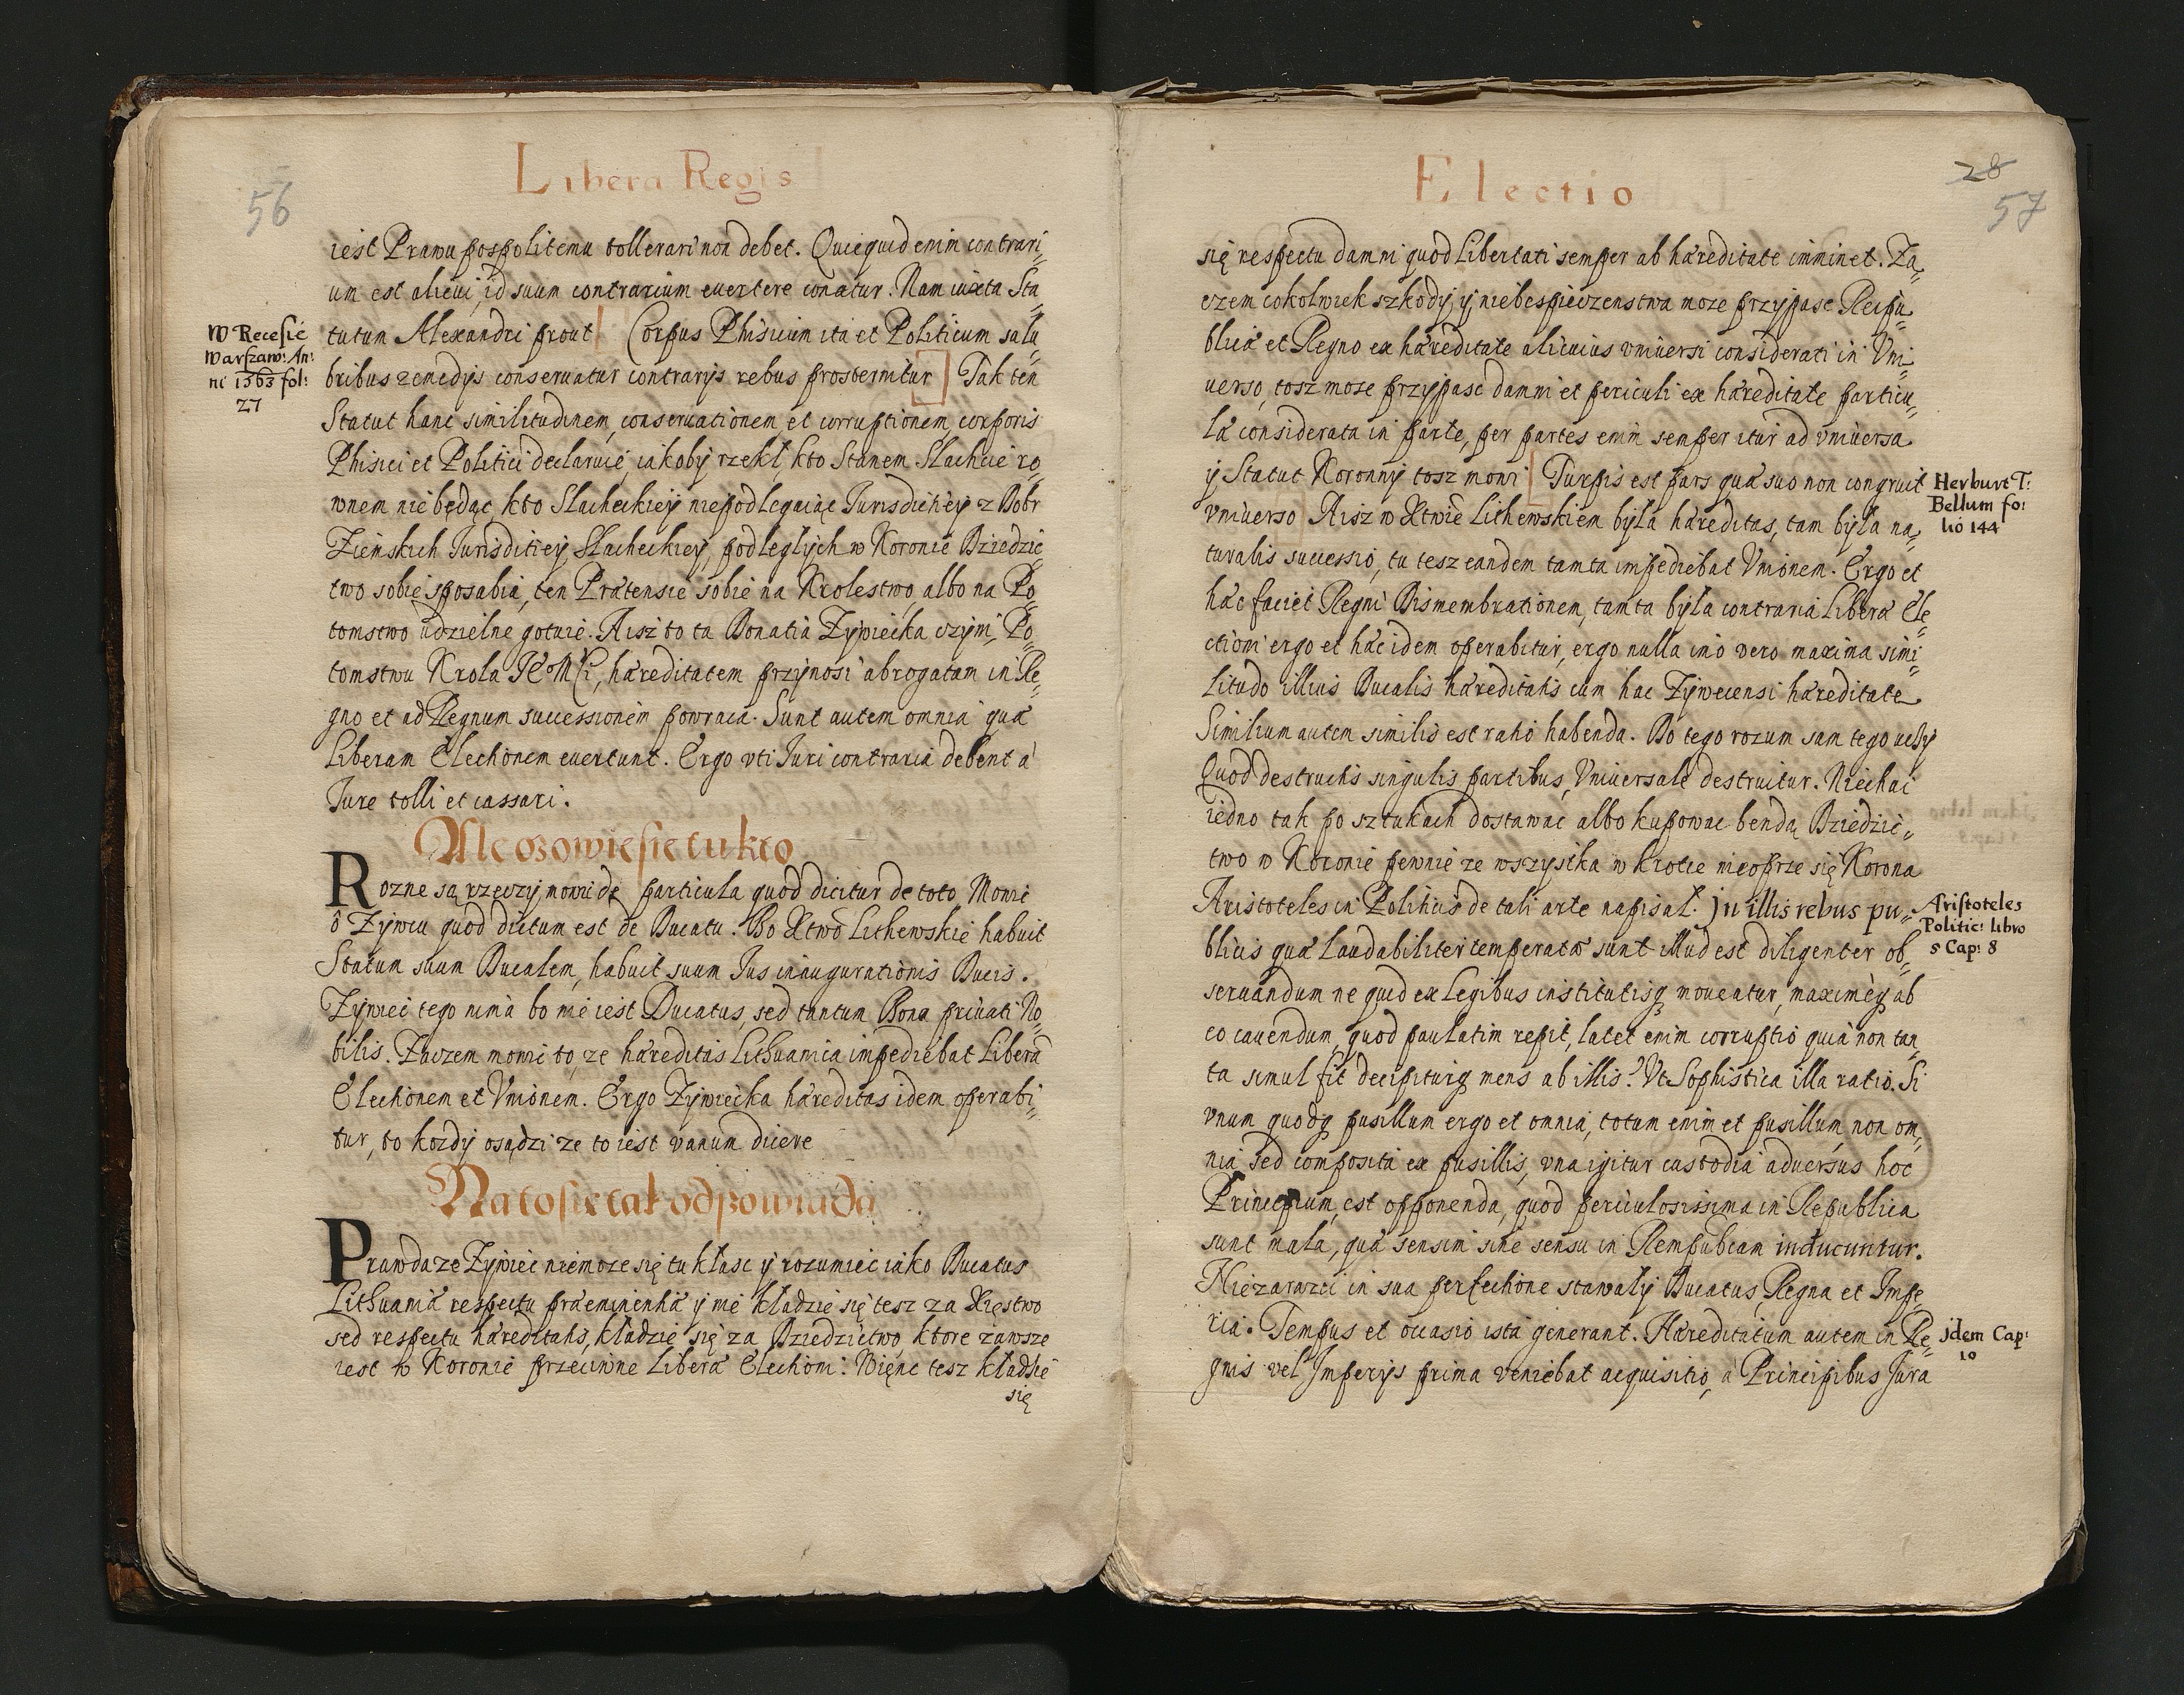 56
Libera Regis
iest Prawu pospolitemu tollerari non debet. Quicquid enim contrari„
um est alicui, id suum contrarium euertere conatur. Nam iuxta Sta„
tutum Alexandri prout Corpus Phisicum ita et Politicum salu„
bribus remedys conseruatur contrarys rebus prosternitur Tak ten
W Recesie
Warszaw: An:
ni 1563 fol:
27
Statut hanc similitudinem, conseruationem, et corruptionem, corporis
Phisici et Politici declaruie, iakoby rzekł, kto Stanem Slachcie ro„
wnem nie będąc, kto Slacheckiey niepodlegaiąc Jurisdictiey z Dobr
Zieńskich Jurisditiey Slacheckiey, podległych w Koronie Dziedzic
two sobie sposabia, ten Prætensie sobie na Krolestwo, albo na Po„
tomstwo udzielne gotuie. A isz to ta Donatia Zywiecka czyni, Po„
tomstwu Krola JE° M°i, hæreditatem przynosi abrogatam in Re„
gno et ad Regnum successionem powraca. Sunt autem omnia quæ
Liberam Electionem euertunt. Ergo vti Juri contraria debent a
Jure tolli et cassari.
Ale ozowie sie tu kto
Rozne są rzeczy, mowi de particula quod dicitur de toto, Mowi
ô Zywcu quod dictum est de Ducatu. Bo Xtwo Lithewskie habuit
Statum suum Ducalem, habuit suum Jus inaugurationis Ducis.
Zywiec tego nima bo nie iest Ducatus, sed tantum Bona priuati No„
bilis. Zaczem mowic to, ze hæreditas Lithuanica impediebat Liberã
Electionem et Vnionem. Ergo Zywiecka hæreditas idem operabi„
tur, to kozdy osądzi ze to iest vanum dicere
Na to sie tak odpowiada
Prawda ze Zywiec niemoze się tu kłasc y rozumiec iako Ducatus
Lithuaniæ respectu præeminentiæ y nie kładzie się tesz za Xięstwo
sed respectu hæreditatis, kładzie się za Dziedzictwo, ktore zawsze
iest w Koronie przeciwne Liberæ Electioni. Więnc tesz kładzie
się
28
57
Electio
się respectu damni quod Libertati semper ab hæreditate imminet. Za„
czem cokolwiek szkody, y niebespieczenstwa moze przypasc Reipu„
blicæ et Regno ex hæreditate alicuius vniuersi considerati in Vni„
uerso, tosz moze przypasc damni et periculi ex hæreditate particu„
læ considerata in parte, per partes enim semper itur ad vniuersa
y Statut Koronny tosz mowi Turpis est pars quæ suo non congruit
Herburt T:
Bellum fo:
lio 144
vniuerso A isz w Xtwie Lithewskiem była hæreditas, tam była na„
turalis successio, tu tesz eandem tamta impediebat Vnionem. Ergo et
hæc faciet Regni Dismembrationem, tamta była contraria Liberæ Ele„
ctioni ergo et hæc idem operabitur, ergo nulla imo vero maxima simi„
litudo illius Ducalis hæreditatis cum hac Zywecensi hæreditate
Similium autem similis est ratio habenda. Bo tego rozum sam tego uczy
Quod destructis singulis partibus, Vniuersale destruitur. Niechai
iedno tak po sztukach dostawac albo kupowac bendą Dziedzic„
two w Koronie pewnie ze wszysika w krotce nieoprze się Korona
Aristoteles in Politicis de tali arte napisał. In illis rebus pu„
Aristoteles
Politic: libro
5 Cap: 8
blicis quæ laudabiliter temperatæ sunt illud est diligenter ob„
seruandum ne quid ex Legibus institutisq moueatur, maximeq ab
eo cauendum, quod paulatim repit, latet enim corruptio quia non tan„
ta simul fit decipiturq mens ab illis? Vt Sophistica illa ratio. Si
vnum quodq pusillum ergo et omnia, totum enim et pusillum, non om„
nia sed composita ex pusillis, vna igitur custodia aduersus hoc
Principium, est opponenda, quod periculosissima in Republica
sunt mala, quæ sensim sine sensu in Rempubcam inducuntur.
Niezarazci in sua perfectione stawały Ducatus, Regna et Impe„
ria. Tempus et occasio ista generant. Hæreditatum autem in Re„
Jdem Cap:
10
gnis vel Jmperys prima veniebat acquisitio, a Principibus Jura